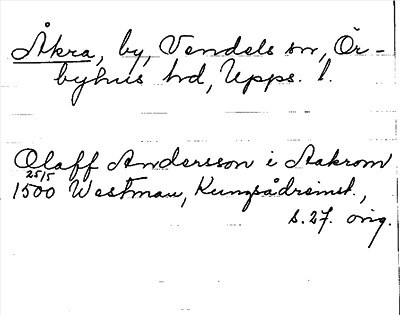 Åkra, by, Vendels sn, Ör-
byhus hd, Upps. l.
Olaff Andersson i Aakrom
25/5
1500 Westman, Kungsådreinst.,
s. 27. orig.